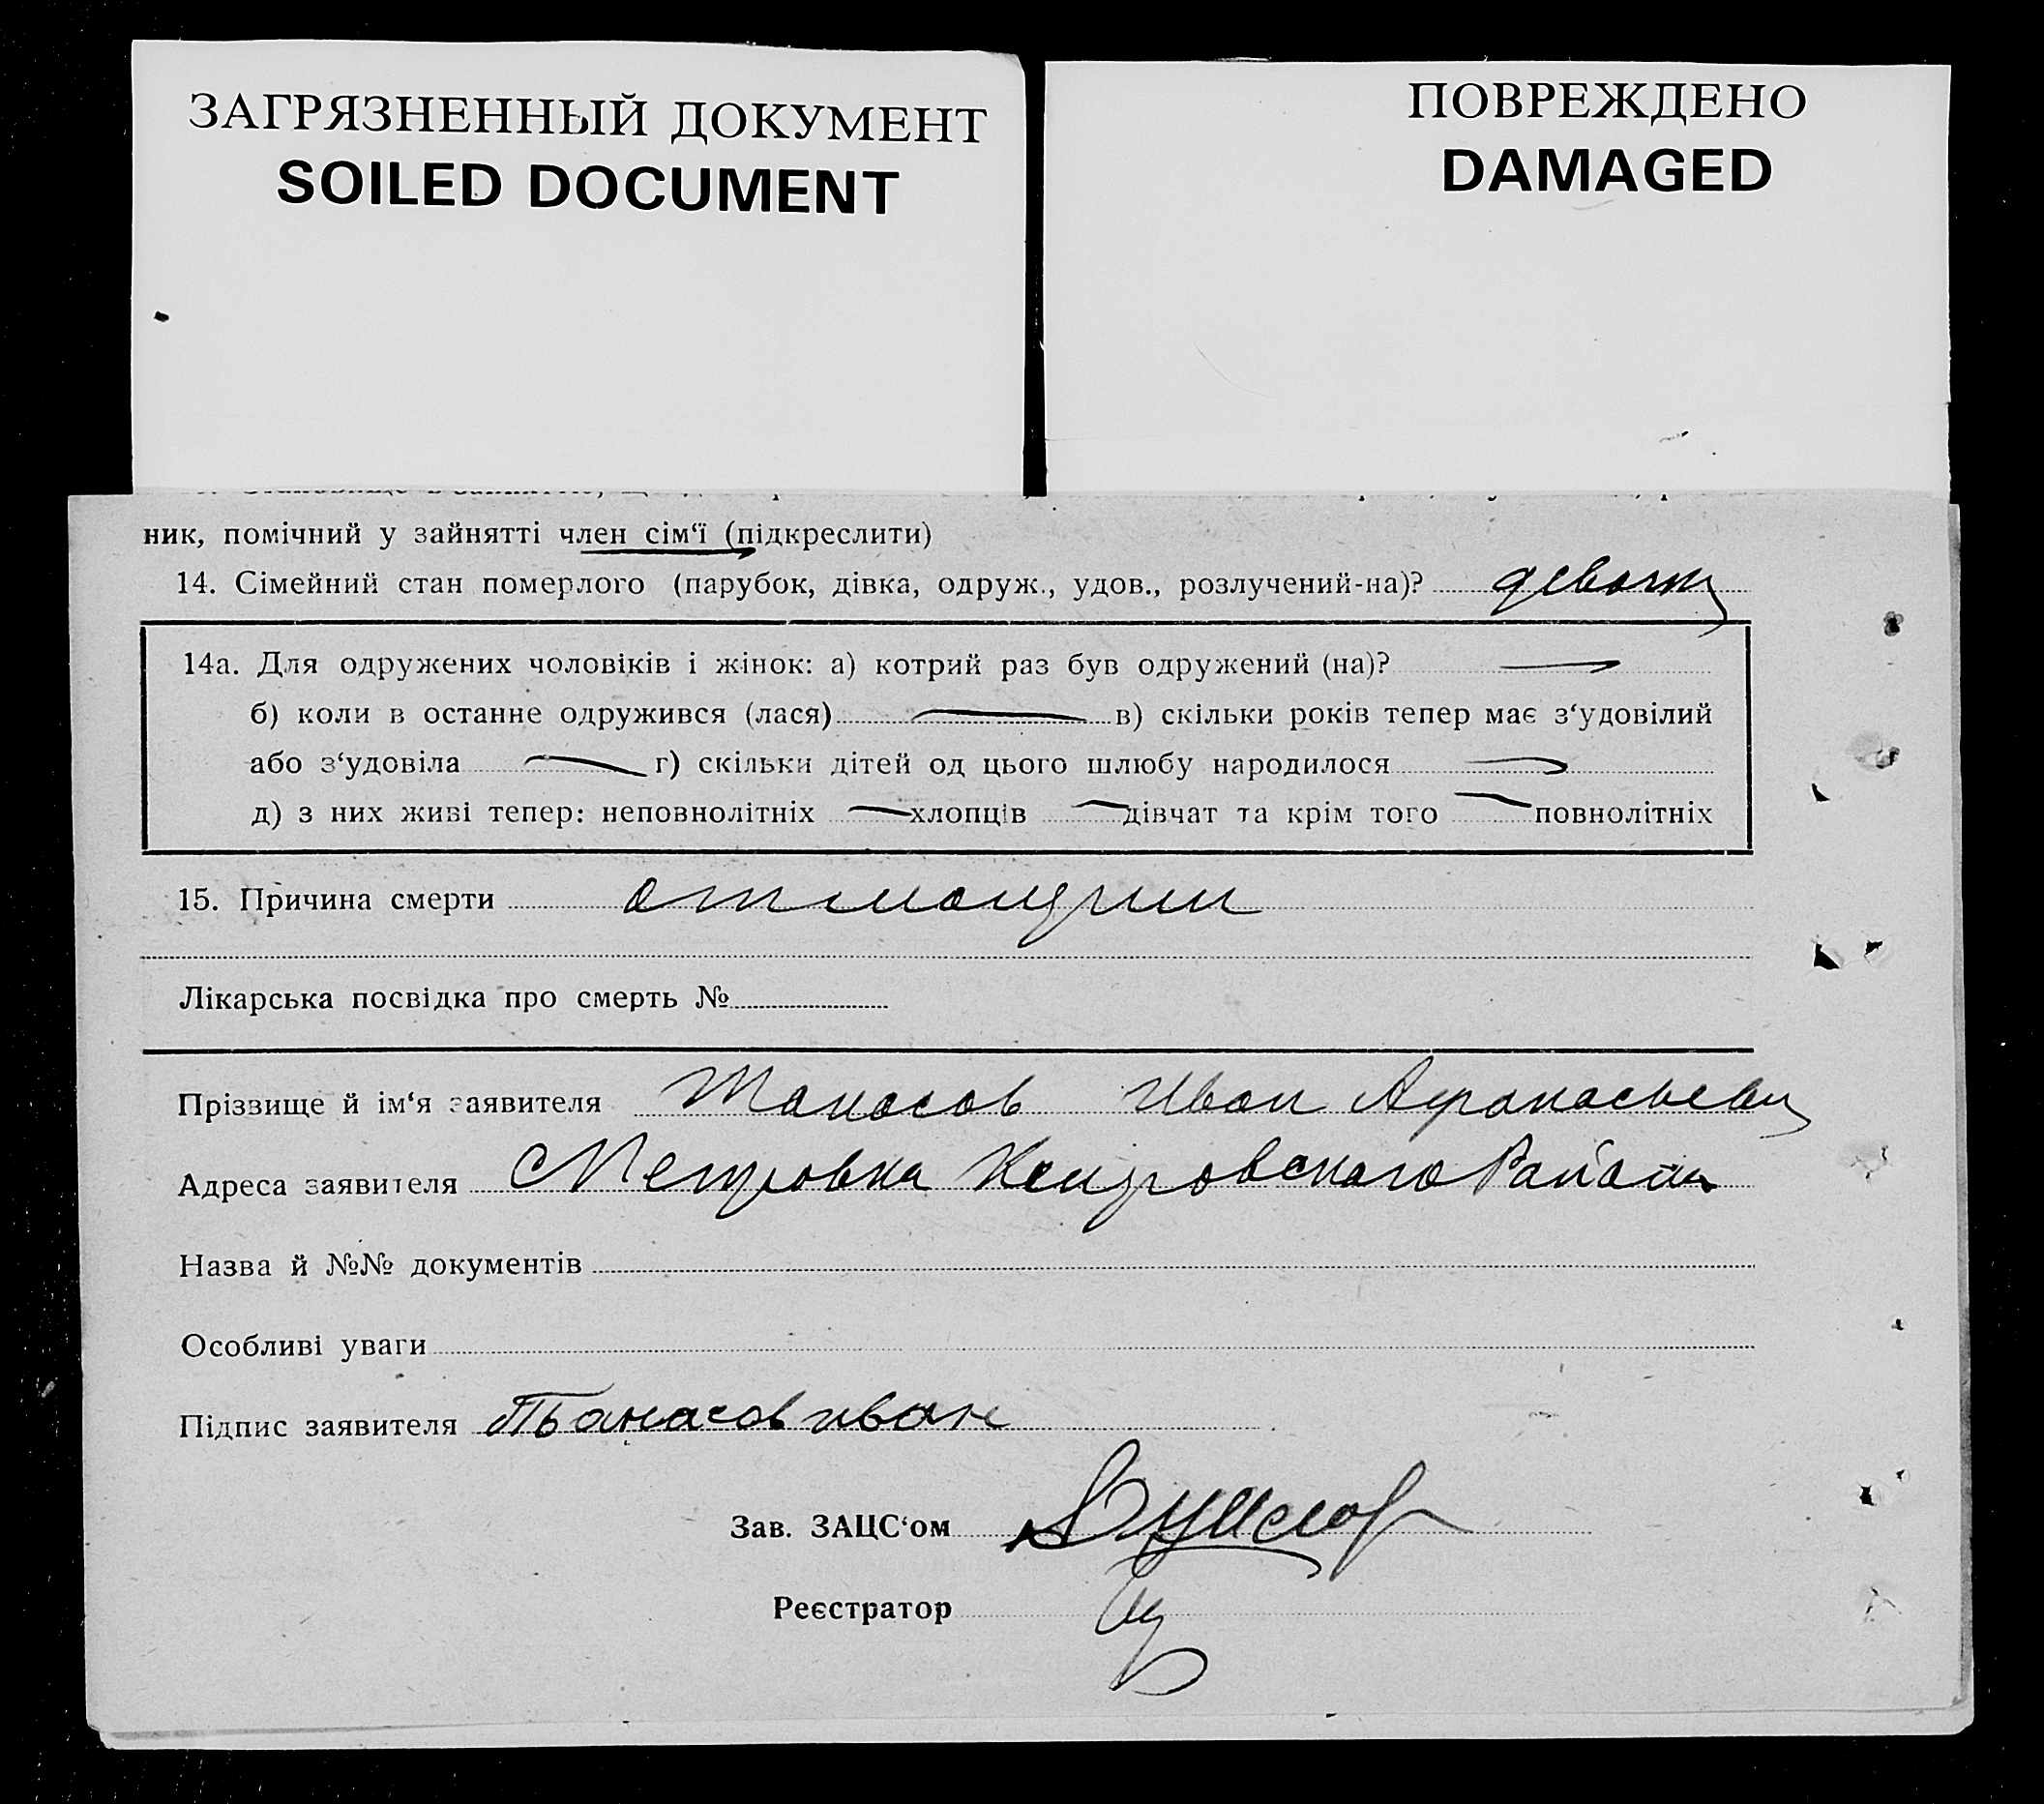 ЗАГРЯЗНЕННЫЙ ДОКУМЕНТ
SOILED DOCUMENT
ПОВРЕЖДЕНО
DAMAGED
ник, помічний у зайнятті член сім‘ї (підкреслити)
14. Сімейний стан померлого (парубок, дівка, одруж., удов., розлучений-на)?
14а. Для одружених чоловіків і жінок: а) котрий раз був одружений (на)? —
б) коли в останне одружився (лася) — в) скільки років тепер має з‘удовілий
або з‘удовіла — г) скільки дітей од цього шлюбу народилося —
д) з них живі тепер: неповнолітніх — хлопців — дівчат та крім того — повнолітніх
15. Причина смерти
Лікарська посвідка про смерть №
Прізвище й ім‘я заявителя Танасов Иван Афанасьевич
Адреса заявителя с Петровка района
Назва й №№ документів
Особливі уваги
Підпис заявителя Танасов иван
Зав. ЗАЦС‘ом
Реєстратор